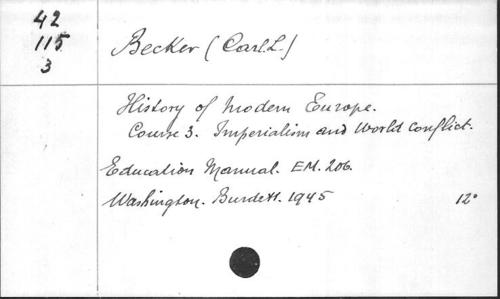 42
115
3
Becker (Carl L.)
History of Modern Europe.
Course 3. Imperialism and World Conflict.
Education Manual. EM. 206.
Washington. Burdett. 1945
12°